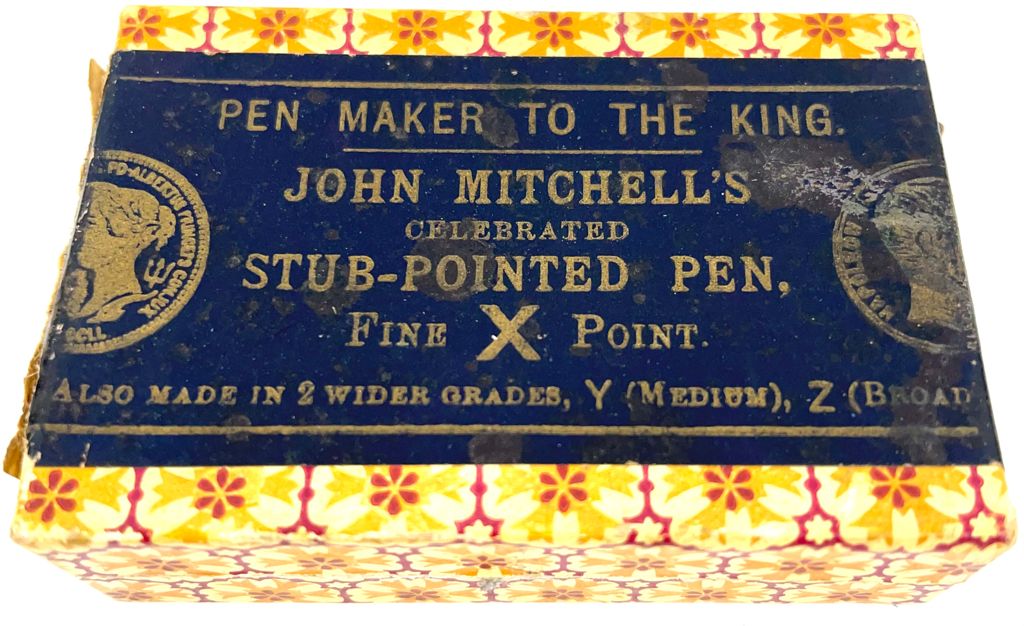 PEN MAKER TO THE KING.
JOHN MITCHELL'S
CELEBRATED
STUB-POINTED PEN,
FINE X POINT.
ALSO MADE IN 2 WIDER GRADES, Y (MEDIUM), Z (BROAD
PD-ALBERTUS
CONJUX